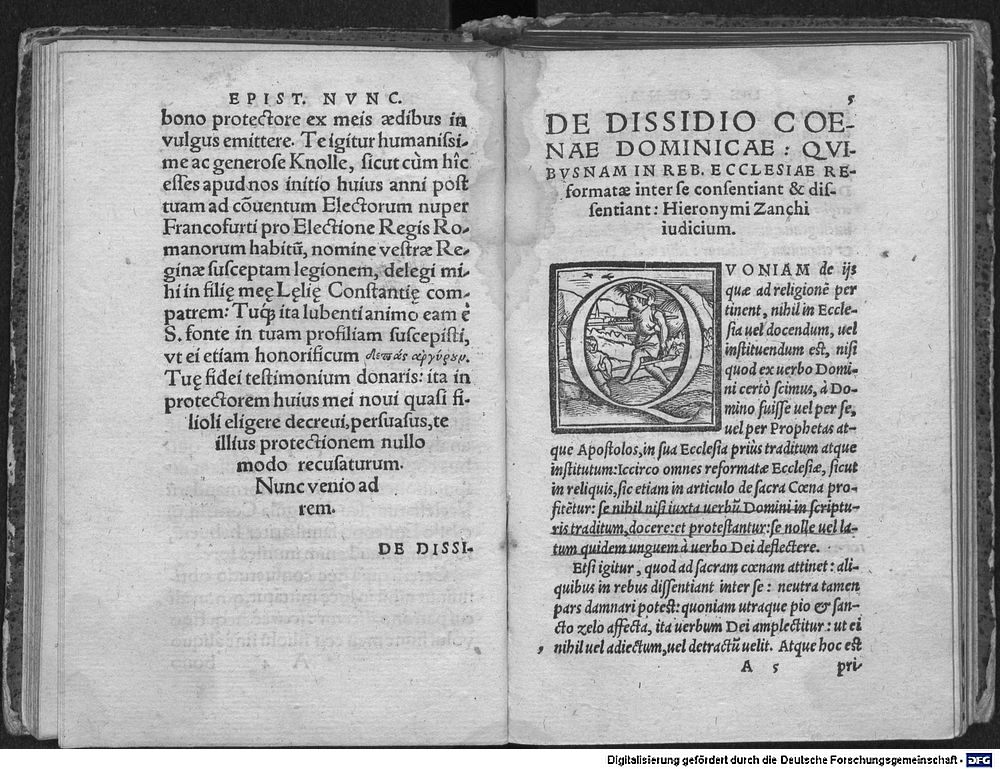 EPIST. NVNC.
bono protectore ex meis ædibus in
vulgus emittere. Te igitur humanissi-
me ac generose Knolle, sicut cùm hîc
esses apud nos initio huius anni post
tuam ad cōuentum Electorum nuper
Francofurti pro Electione Regis Ro-
manorum habitū, nomine vestræ Re-
ginæ susceptam legionem, delegi mi-
hi in filię meę Lęlię Constantię com-
patrem: Tuq́; ita lubenti animo eam è
S. fonte in tuam profiliam suscepisti,
vt ei etiam honorificum
Tuę fidei testimonium donaris: ita in
protectorem huius mei noui quasi fi-
lioli eligere decreui, persuasus, te
illius protectionem nullo
modo recusaturum.
Nunc venio ad
rem.
DE DISSI-
5
DE DISSIDIO COE-
NAE DOMINICAE: QVI-
BVSNAM IN REB. ECCLESIAE RE-
formatæ inter se consentiant & dis-
sentiant: Hieronymi Zanchi
iudicium.
QVONIAM de ijs
quæ ad religionē per
tinent, nihil in Eccle-
sia uel docendum, uel
instituendum est, nisi
quod ex uerbo Domi-
ni certò scimus, à Do-
mino fuisse uel per se,
uel per Prophetas at-
que Apostolos, in sua Ecclesia priùs traditum atque
institutum: Iccirco omnes reformatæ Ecclesiæ, sicut
in reliquis, sic etiam in articulo de sacra Cœna pro-
fitētur: se nihil nisi iuxta uerbū Domini in scriptu-
ris traditum, docere: et protestantur: se nolle uel la-
tum quidem unguem à uerbo Dei deflectere.
Etsi igitur, quod ad sacram cœnam attinet: ali-
quibus in rebus dissentiant inter se: neutra tamen
pars damnari potest: quoniam utraque pio & san-
cto zelo affecta, ita uerbum Dei amplectitur: ut ei
nihil uel adiectum, uel detractū uelit. Atque hoc est
A 5 pri-
Digitalisierung gefördert durch die Deutsche Forschungsgemeinschaft - DFG